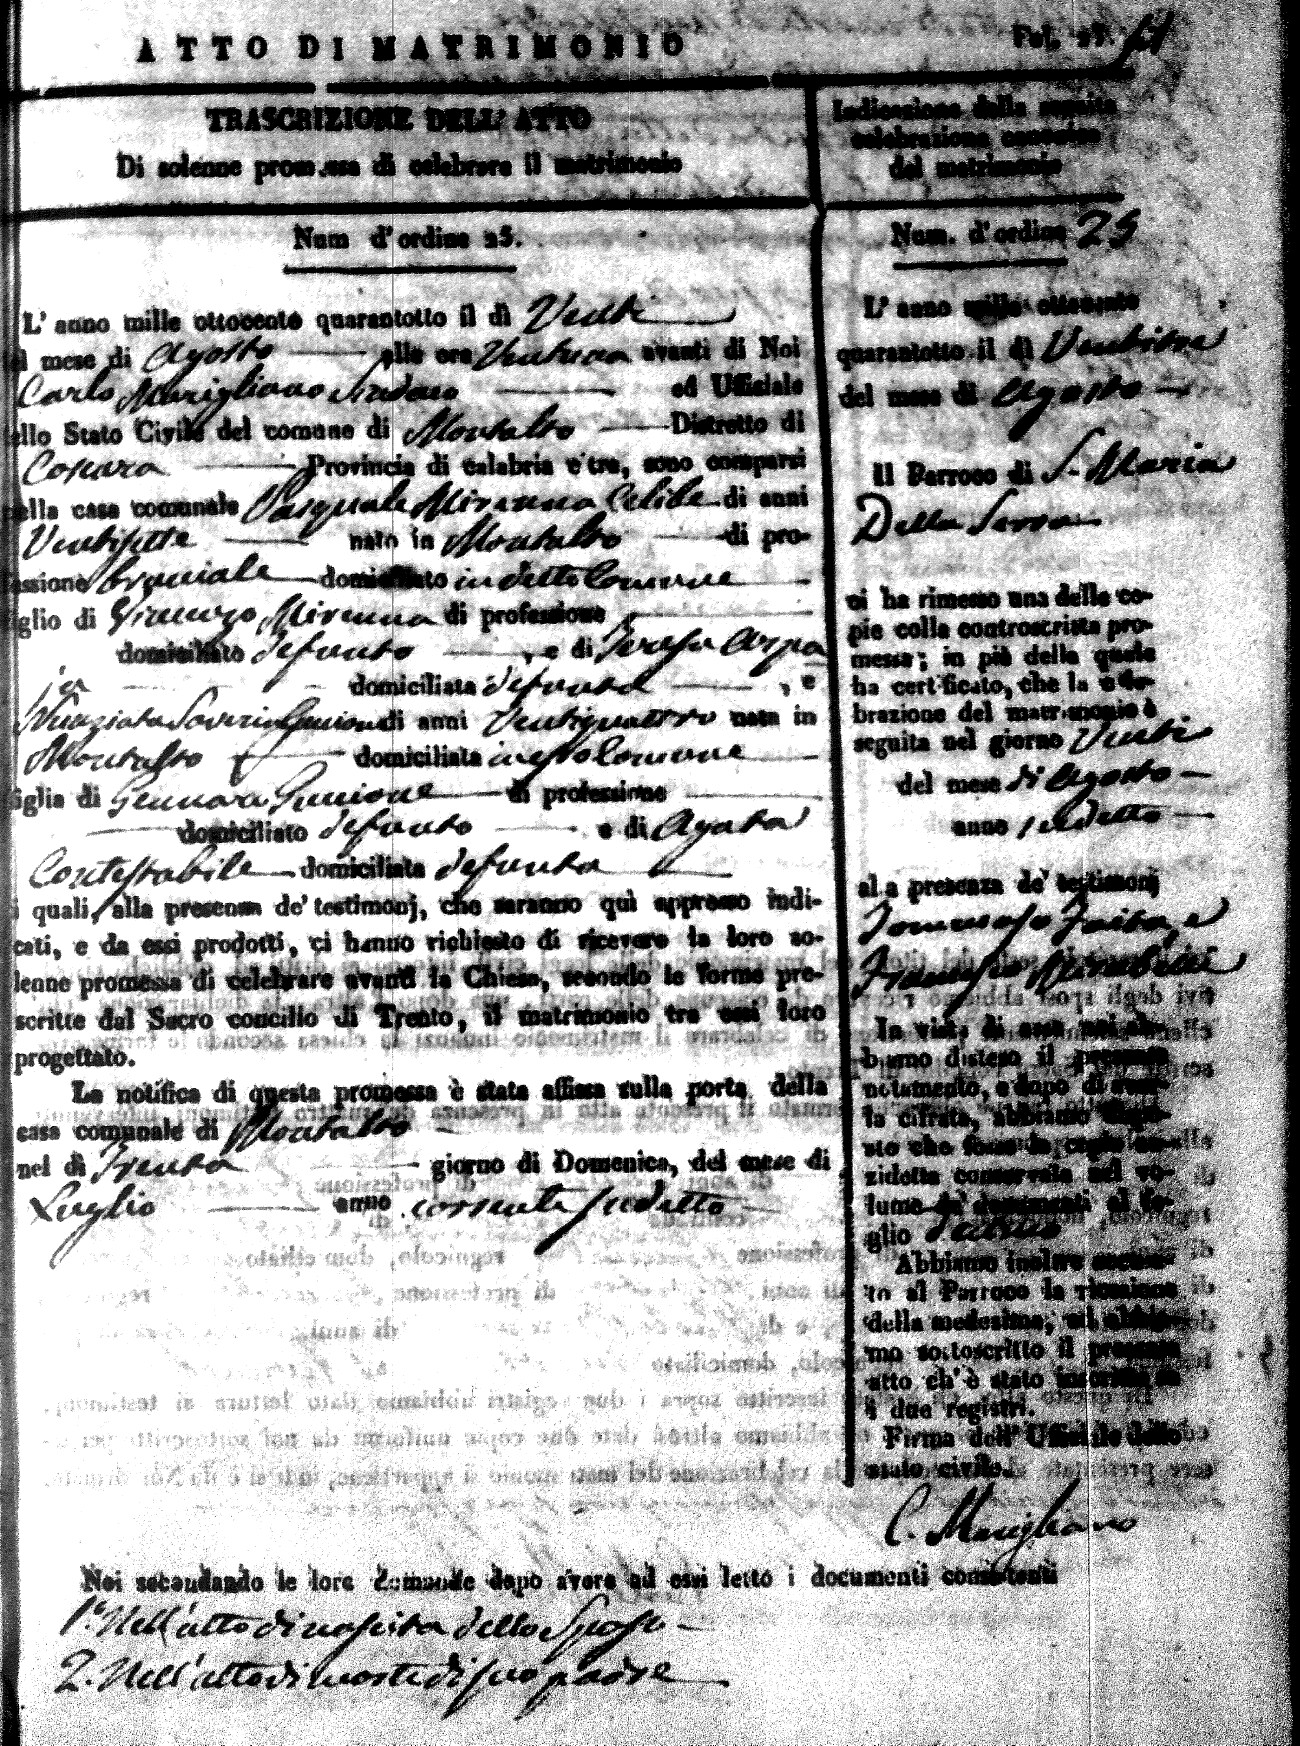 ATTO DI MATRIMONIO
Fol. 25.
TRASCRIZIONE DELL' ATTO
Di solenne promessa di celebrare il matrimonio
Num d'ordine 25.
L' anno mille ottocento quarantotto il dì Venti
mese di Agosto alle ore avanti di Noi
Carlo Marigliano Sindaco ed Uffiziale
ello Stato Civile del comune di Montalto Distretto di
Cosenza Provincia di calabria citra, sono comparsi
nella casa comunale Pasquale Mirenna Celibe di anni
Ventisette nato in Montalto di pro-
fessione bracciale domiciliato in detto Comune
figlio di Vincenzo Mirenna di professione
domiciliato defunto , e di Teresa
domiciliata defunta , e
Nunziata di anni Ventiquattro nata in
Montalto domiciliata in esso Comune
figlia di Gennaro di professione
domiciliato defunto e di Agata
Contestabile domiciliata defunta
i quali, alla presenza de' testimonj, che saranno quì appresso indi-
cati, e da essi prodotti, ci hanno richiesto di ricevere la loro so-
lenne promessa di celebrare avanti la Chiesa, secondo le forme pre-
scritte dal Sacro concilio di Trento, il matrimonio tra essi loro
progettato.
La notifica di questa promessa è stata affissa sulla porta della
casa comunale di Montalto
nel dì Trenta giorno di Domenica, del mese di
Luglio anno corrente sudetto
Indicazione della seguita
celebrazione canonica
del matrimonio
Num. d'ordine 25
L' anno mille ottocento
quarantotto il dì Ventitre
del mese di Agosto
Il Parroco di S. Maria
Della Serra
ci ha rimesso una delle co-
pie colla controscritta pro-
messa; in piè della quale
ha certificato, che la cele-
brazione del matrimonio è
seguita nel giorno Venti
del mese di Agosto
anno sudetto
alla presenza de' testimonj
Tommaso Faita, e
Francesco Mirabelli
In vista di essa noi ab-
biamo disteso il presente
notamento, e dopo di aver-
la cifrata, abbiamo dispo-
sto che fosse la copia an-
zidetta conservata nel vo-
lume de' documenti al fo-
glio
Abbiamo inoltre accusa-
to al Parroco la ricezione
della medesima, ed abbia-
mo sottoscritto il presente
atto ch'è stato inscritto su
i due registri.
Firma dell' Uffiziale dello
stato civile.
C. Marigliano
Noi secondando le loro domande dopo avere ad essi letto i documenti consistenti
1.° Nell'atto di nascita dello Sposo
2. Nell'atto di morte di suo padre